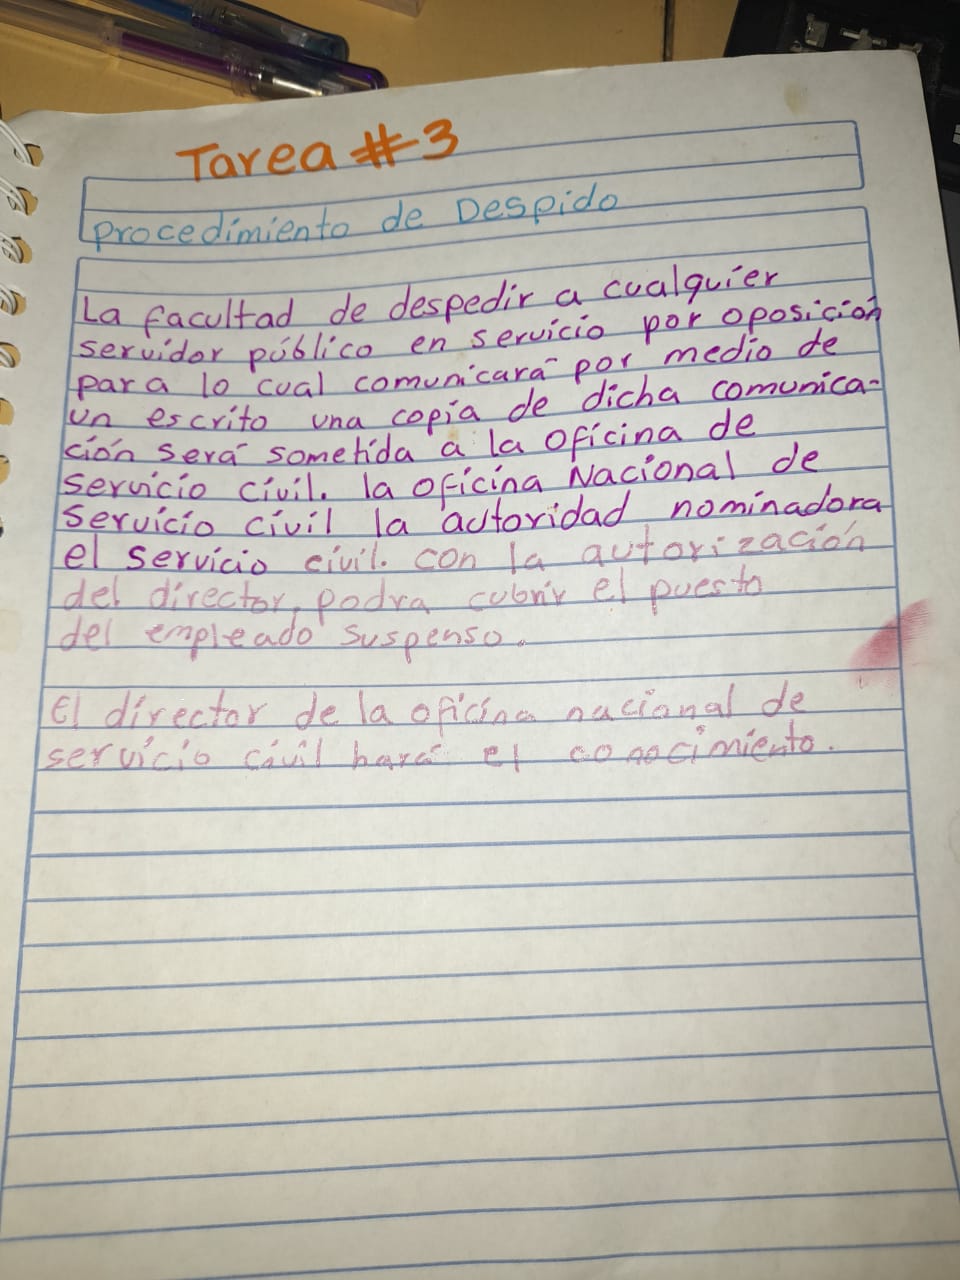 Tarea #3
procedimiento de Despido
La facultad de despedir a cualquier
servidor público en servicio por oposición
para lo cual comunicará por medio de
un escrito una copia de dicha comunica-
ción será sometida a la oficina de
servicio civil. la oficina Nacional de
servicio civil la autoridad nominadora
el servicio civil. con la autorización
del director, podra cubrir el puesto
del empleado suspenso.
El director de la oficina nacional de
servicio civil hará el conocimiento.